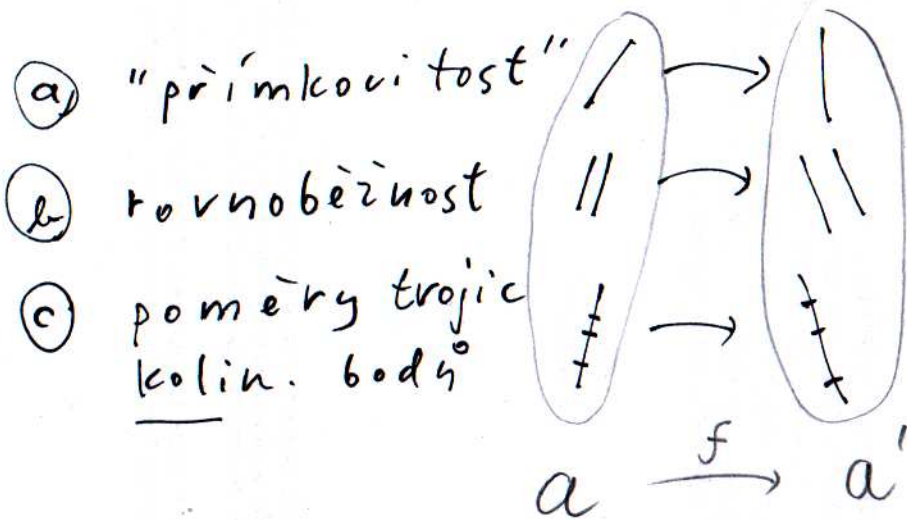 a) "přímkovitost"
b) rovnoběžnost
c) poměry trojic
kolin. bodů
f
a → a'